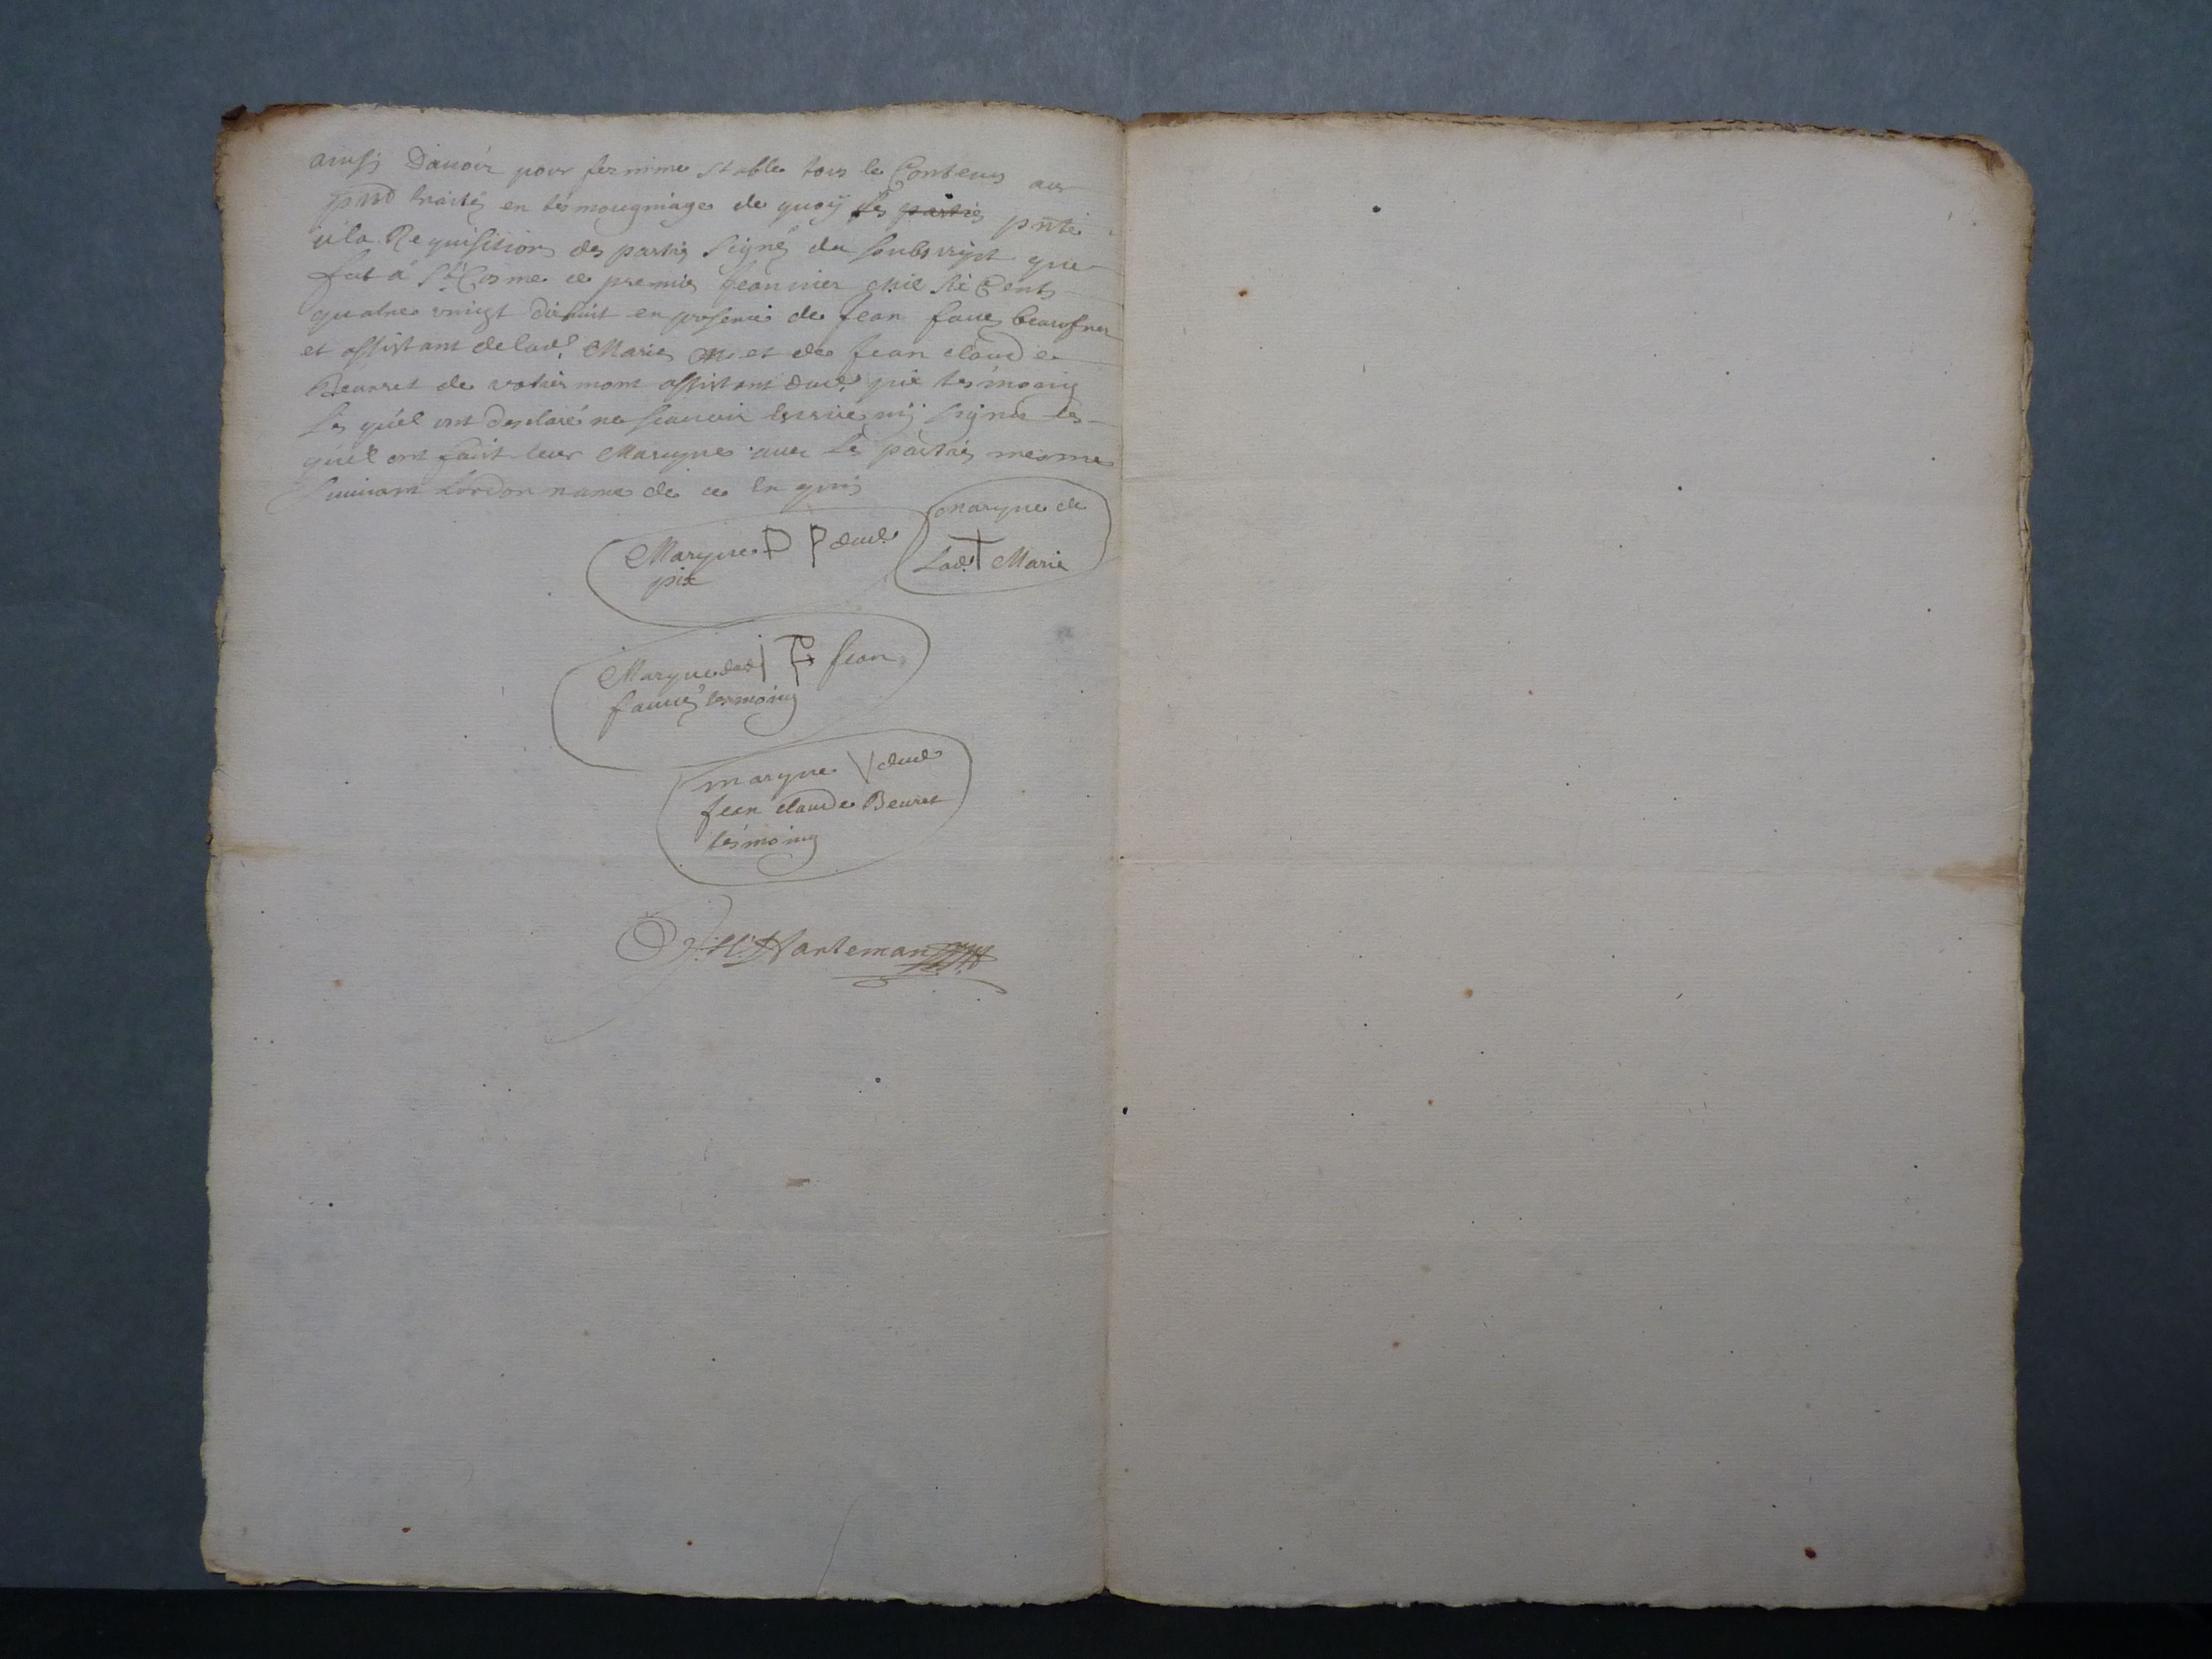 ainsi D'auoir pour fermme stable tous le Contenus aux
pnt traité en tesmougniage de quoÿ les parties pnte
a la Requisition des partie signé du soubscript que
fut a St Cosme ce premie Jeanuier Mil Six Cents
quatre vingt dixhuit en presence de Jean faue beaufrer
et assistant de lad. Marie et de Jean claude
Beurret de assistant dud. pix tesmoing
Les quel ont desclaré ne scauoir escrire nÿ signer les
quel ont faict leur Marque auec les partie mesme
suiuant Lordonnance de ce
Marque P P dud.
pix
Marque de
Lad. Marie
Marque dud. Jean
faue tesmoing
marque V dud.
Jean claude Beuret
tesmoing
Harteman